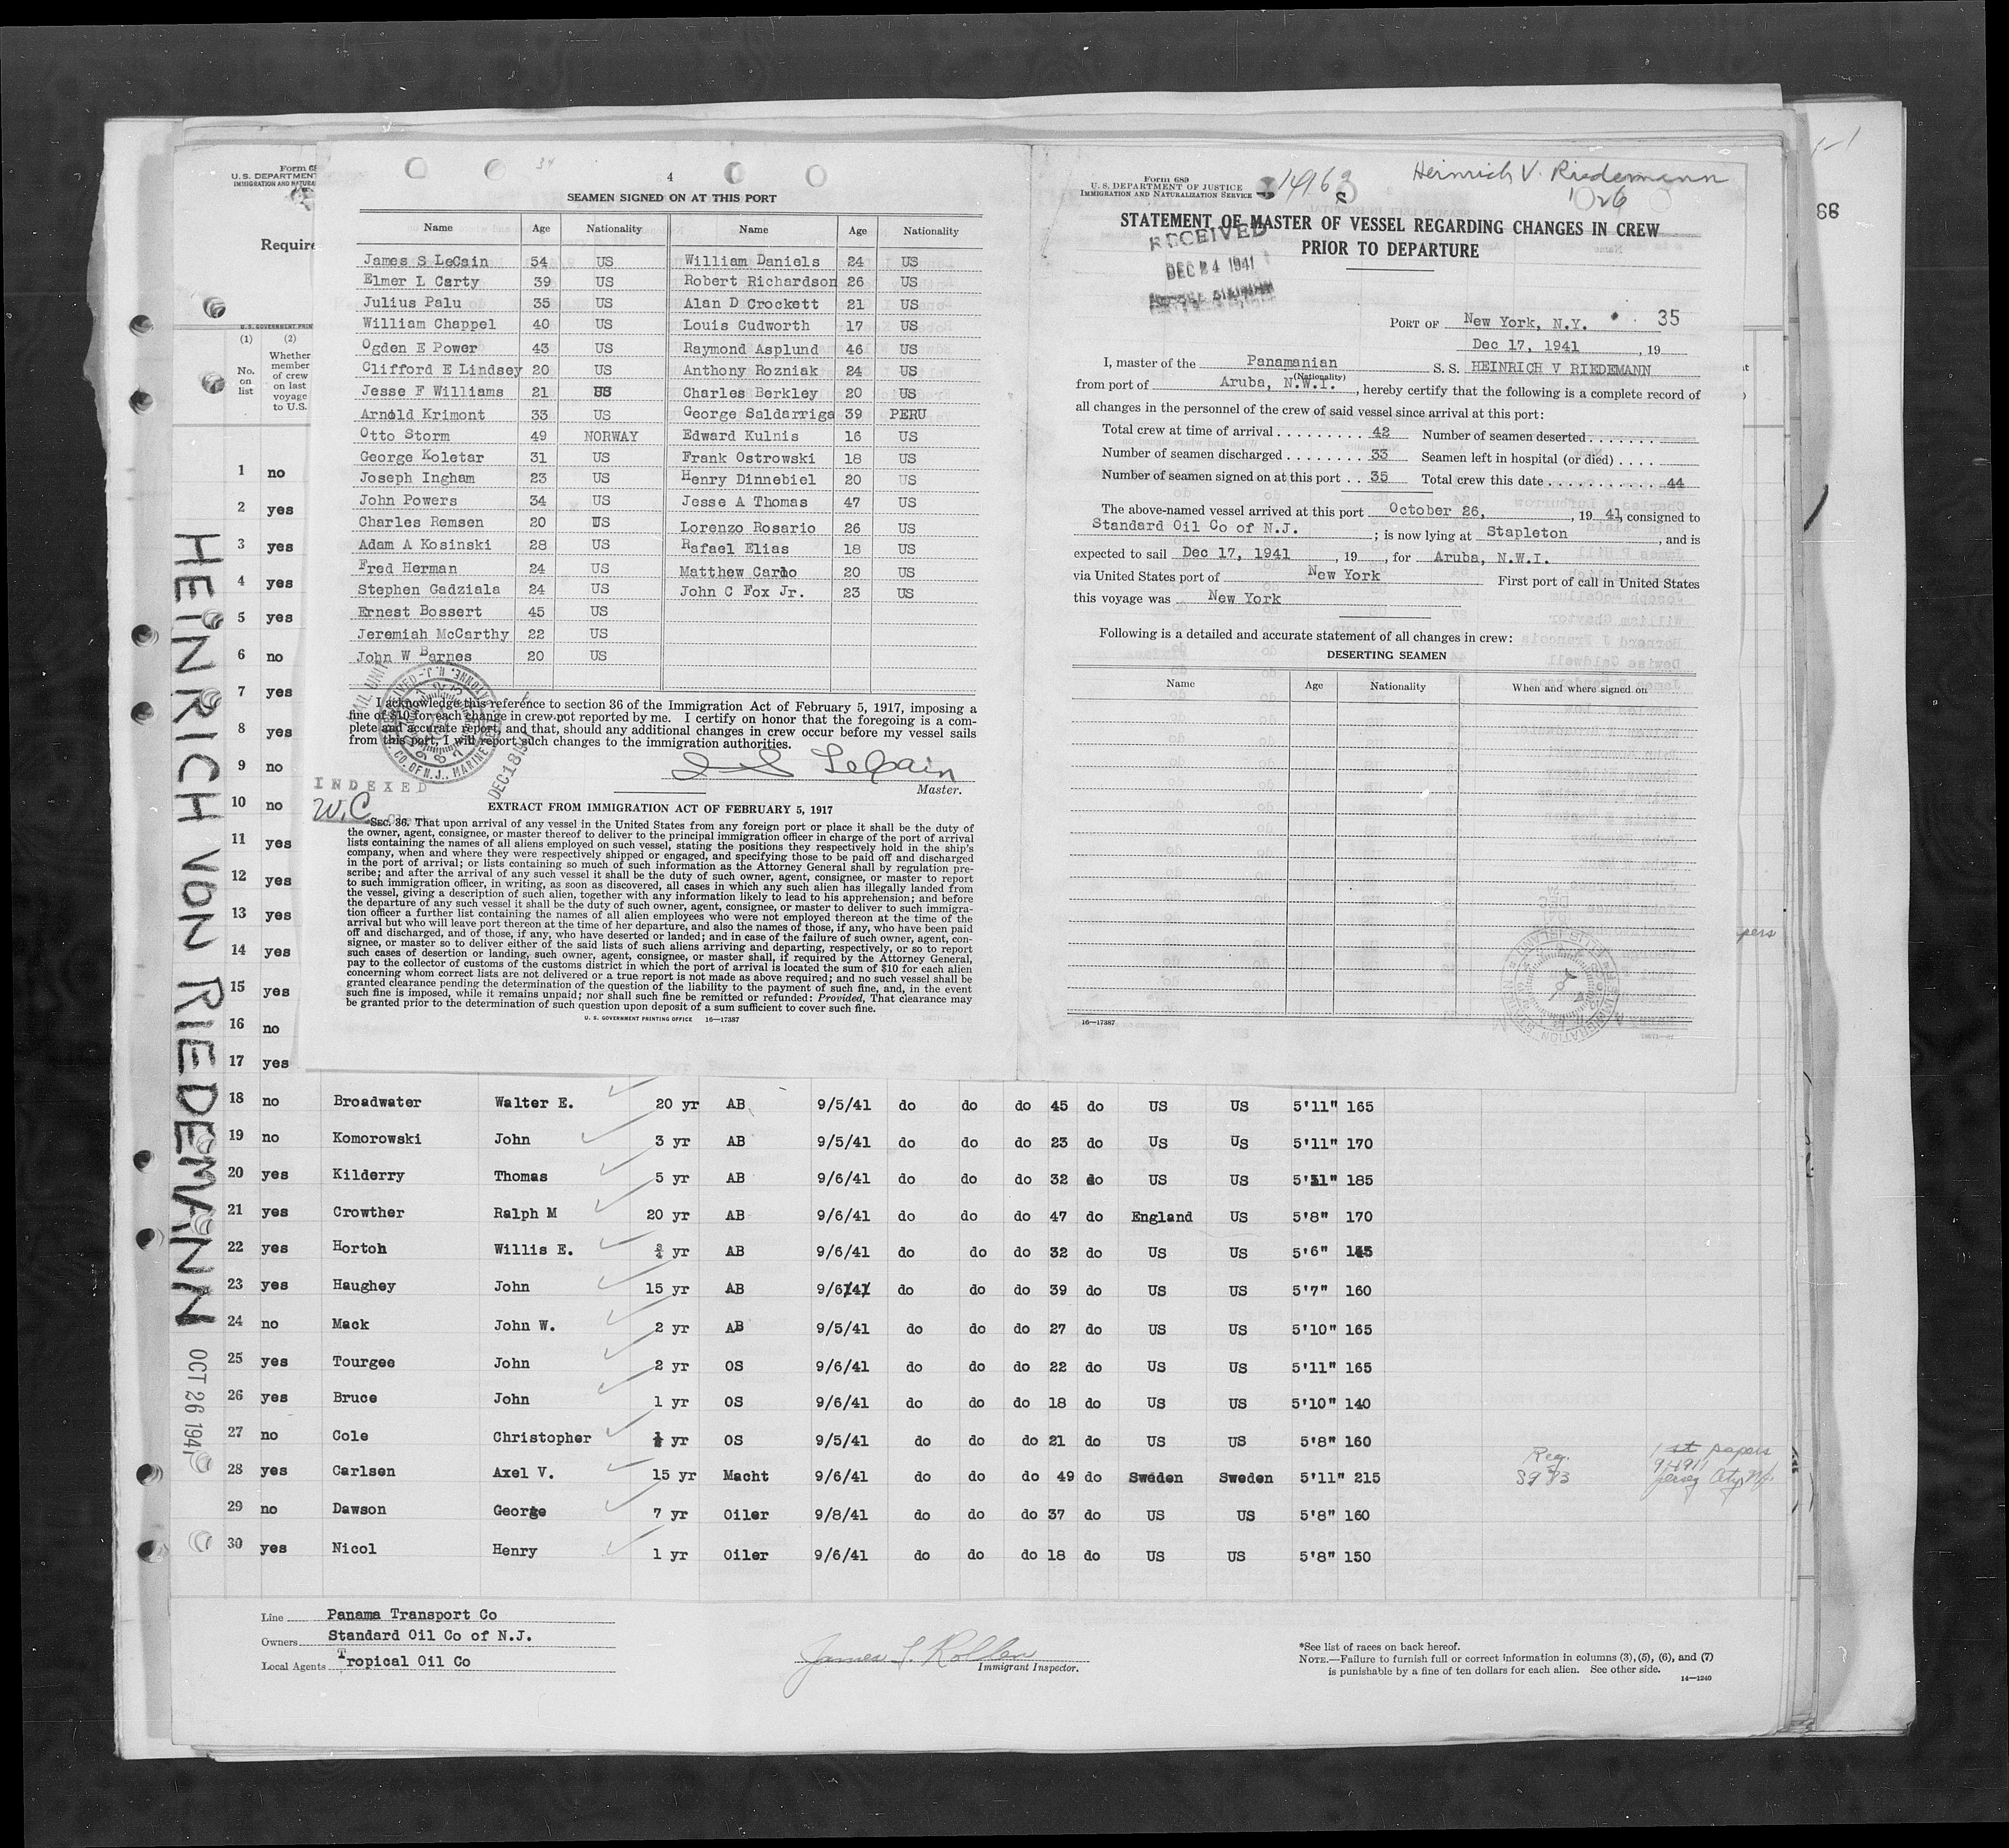 Form 68
U. S. DEPARTMENT
IMMIGRATION AND NATURA
Require
U. S. GOVERNMENT PRIN
(1)
(2)
No.
on
list
Whether
member
of crew
on last
voyage
to U.S.
1 no
2 yes
3 yes
4 yes
5 yes
6 no
7 yes
8 yes
9 no
10 no
11 yes
12 yes
13 yes
14 yes
15 yes
16 no
17 yes
HEINRICH VON RIEDEMANN
OCT 26 194
34
4
SEAMEN SIGNED ON AT THIS PORT
Name Age Nationality Name Age Nationality
James S LeCain 54 US William Daniels 24 US
Elmer L Carty 39 US Robert Richardson 26 US
Julius Palu 35 US Alan D Crockett 21 US
William Chappel 40 US Louis Cudworth 17 US
Ogden E Power 43 US Raymond Asplund 46 US
Clifford E Lindsey 20 US Anthony Rozniak 24 US
Jesse F Williams 21 US Charles Berkley 20 US
Arnold Krimont 33 US George Saldarriga 39 PERU
Otto Storm 49 NORWAY Edward Kulnis 16 US
George Koletar 31 US Frank Ostrowski 18 US
Joseph Ingham 23 US Henry Dinnebiel 20 US
John Powers 34 US Jesse A Thomas 47 US
Charles Remsen 20 US Lorenzo Rosario 26 US
Adam A Kosinski 28 US Rafael Elias 18 US
Fred Herman 24 US Matthew Carlo 20 US
Stephen Gadziala 24 US John C Fox Jr. 23 US
Ernest Bossert 45 US
Jeremiah McCarthy 22 US
John W Barnes 20 US
I acknowledge this reference to section 36 of the Immigration Act of February 5, 1917, imposing a
fine of $10 for each change in crew not reported by me. I certify on honor that the foregoing is a com-
plete and accurate report, and that, should any additional changes in crew occur before my vessel sails
from this port, I will report such changes to the immigration authorities.
LeCain
Master.
INDEXED
W.C.
DEC 18 1941
EXTRACT FROM IMMIGRATION ACT OF FEBRUARY 5, 1917
SEC. 36. That upon arrival of any vessel in the United States from any foreign port or place it shall be the duty of
the owner, agent, consignee, or master thereof to deliver to the principal immigration officer in charge of the port of arrival
lists containing the names of all aliens employed on such vessel, stating the positions they respectively hold in the ship's
company, when and where they were respectively shipped or engaged, and specifying those to be paid off and discharged
in the port of arrival; or lists containing so much of such information as the Attorney General shall by regulation pre-
scribe; and after the arrival of any such vessel it shall be the duty of such owner, agent, consignee, or master to report
to such immigration officer, in writing, as soon as discovered, all cases in which any such alien has illegally landed from
the vessel, giving a description of such alien, together with any information likely to lead to his apprehension; and before
the departure of any such vessel it shall be the duty of such owner, agent, consignee, or master to deliver to such immigra-
tion officer a further list containing the names of all alien employees who were not employed thereon at the time of the
arrival but who will leave port thereon at the time of her departure, and also the names of those, if any, who have been paid
off and discharged, and of those, if any, who have deserted or landed; and in case of the failure of such owner, agent, con-
signee, or master so to deliver either of the said lists of such aliens arriving and departing, respectively, or so to report
such cases of desertion or landing, such owner, agent, consignee, or master shall, if required by the Attorney General,
pay to the collector of customs of the customs district in which the port of arrival is located the sum of $10 for each alien
concerning whom correct lists are not delivered or a true report is not made as above required; and no such vessel shall be
granted clearance pending the determination of the question of the liability to the payment of such fine, and, in the event
such fine is imposed, while it remains unpaid; nor shall such fine be remitted or refunded: Provided, That clearance may
be granted prior to the determination of such question upon deposit of a sum sufficient to cover such fine.
U. S. GOVERNMENT PRINTING OFFICE 16—17387
Form 689
U. S. DEPARTMENT OF JUSTICE
IMMIGRATION AND NATURALIZATION SERVICE
Heinrich V. Riedemann
STATEMENT OF MASTER OF VESSEL REGARDING CHANGES IN CREW
PRIOR TO DEPARTURE
RECEIVED
DEC 24 1941
PORT OF New York, N.Y. 35
Dec 17, 1941, 19
I, master of the Panamanian S. S. HEINRICH V RIEDEMANN
(Nationality)
from port of Aruba, N.W.I., hereby certify that the following is a complete record of
all changes in the personnel of the crew of said vessel since arrival at this port:
Total crew at time of arrival . . . . . . . . . 42 Number of seamen deserted . . . . . . .
Number of seamen discharged . . . . . . . . 33 Seamen left in hospital (or died) . . . .
Number of seamen signed on at this port . . 35 Total crew this date . . . . . . . . . . . 44
The above-named vessel arrived at this port October 26, , 19 41, consigned to
Standard Oil Co of N.J. ; is now lying at Stapleton , and is
expected to sail Dec 17, 1941 , 19 , for Aruba, N.W.I.
via United States port of New York First port of call in United States
this voyage was New York
Following is a detailed and accurate statement of all changes in crew:
DESERTING SEAMEN
Name Age Nationality When and where signed on
16—17387
88
pers
18 no Broadwater Walter E. 20 yr AB 9/5/41 do do do 45 do US US 5'11" 165
19 no Komorowski John 3 yr AB 9/5/41 do do do 23 do US US 5'11" 170
20 yes Kilderry Thomas 5 yr AB 9/6/41 do do do 32 do US US 5'11" 185
21 yes Crowther Ralph M 20 yr AB 9/6/41 do do do 47 do England US 5'8" 170
22 yes Horton Willis E. ¾ yr AB 9/6/41 do do do 32 do US US 5'6"
23 yes Haughey John 15 yr AB 9/6/41 do do do 39 do US US 5'7" 160
24 no Mack John W. 2 yr AB 9/5/41 do do do 27 do US US 5'10" 165
25 yes Tourgee John 2 yr OS 9/6/41 do do do 22 do US US 5'11" 165
26 yes Bruce John 1 yr OS 9/6/41 do do do 18 do US US 5'10" 140
27 no Cole Christopher yr OS 9/5/41 do do do 21 do US US 5'8" 160
28 yes Carlsen Axel V. 15 yr Macht 9/6/41 do do do 49 do Sweden Sweden 5'11" 215 Reg. 1st papers Jersey City NJ.
29 no Dawson George 7 yr Oiler 9/8/41 do do do 37 do US US 5'8" 160
30 yes Nicol Henry 1 yr Oiler 9/6/41 do do do 18 do US US 5'8" 150
Line Panama Transport Co
Owners Standard Oil Co of N.J.
Local Agents Tropical Oil Co
Immigrant Inspector.
*See list of races on back hereof.
NOTE.—Failure to furnish full or correct information in columns (3), (5), (6), and (7)
is punishable by a fine of ten dollars for each alien. See other side.
14—1240